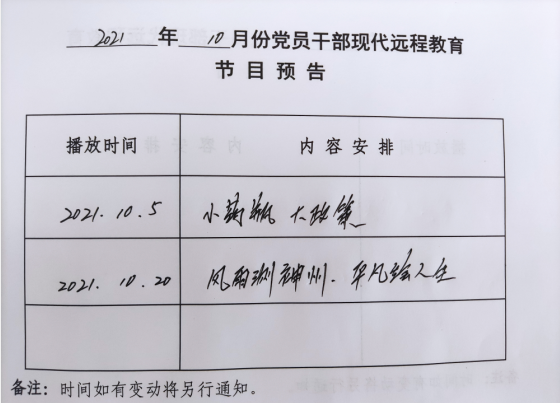 2021 年 10 月份党员干部现代远程教育
节目预告
播放时间 内容安排
2021.10.5 小药瓶 大政策
2021.10.20 风雨测神州.平凡绘人生
备注：时间如有变动将另行通知。